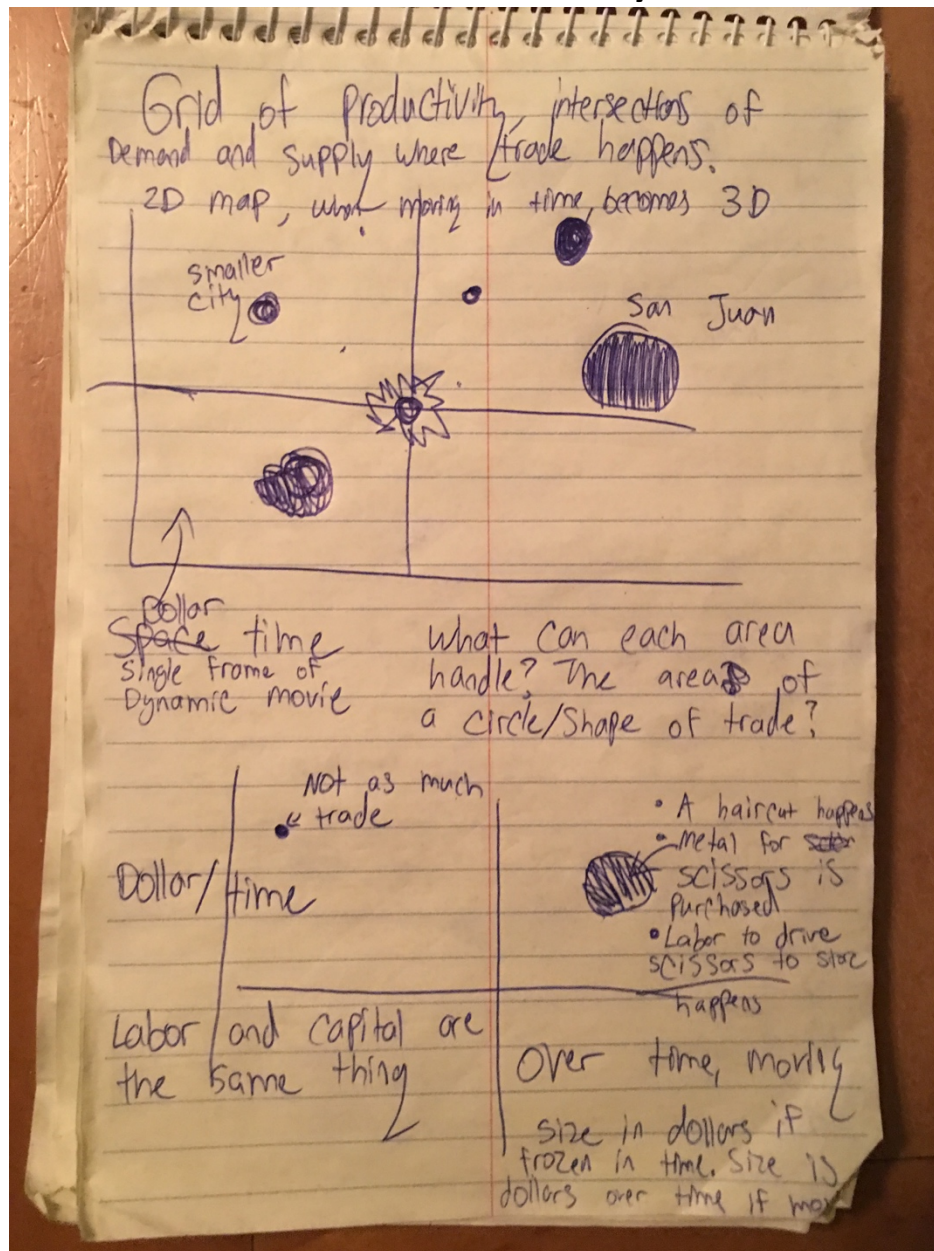 Grid of productivity, intersections of
Demand and supply where trade happens.
2D map, when moving in time, becomes 3D
smaller
city
San Juan
Dollar
Space time
single frame of
Dynamic movie
what can each area
handle? The areas of
a circle/shape of trade?
Not as much
trade
Dollar/time
• A haircut happens
• Metal for
scissors is
purchased
• Labor to drive
scissors to store
happens
Labor and capital are
the same thing
over time, moving
size in dollars if
frozen in time. Size is
dollars over time if